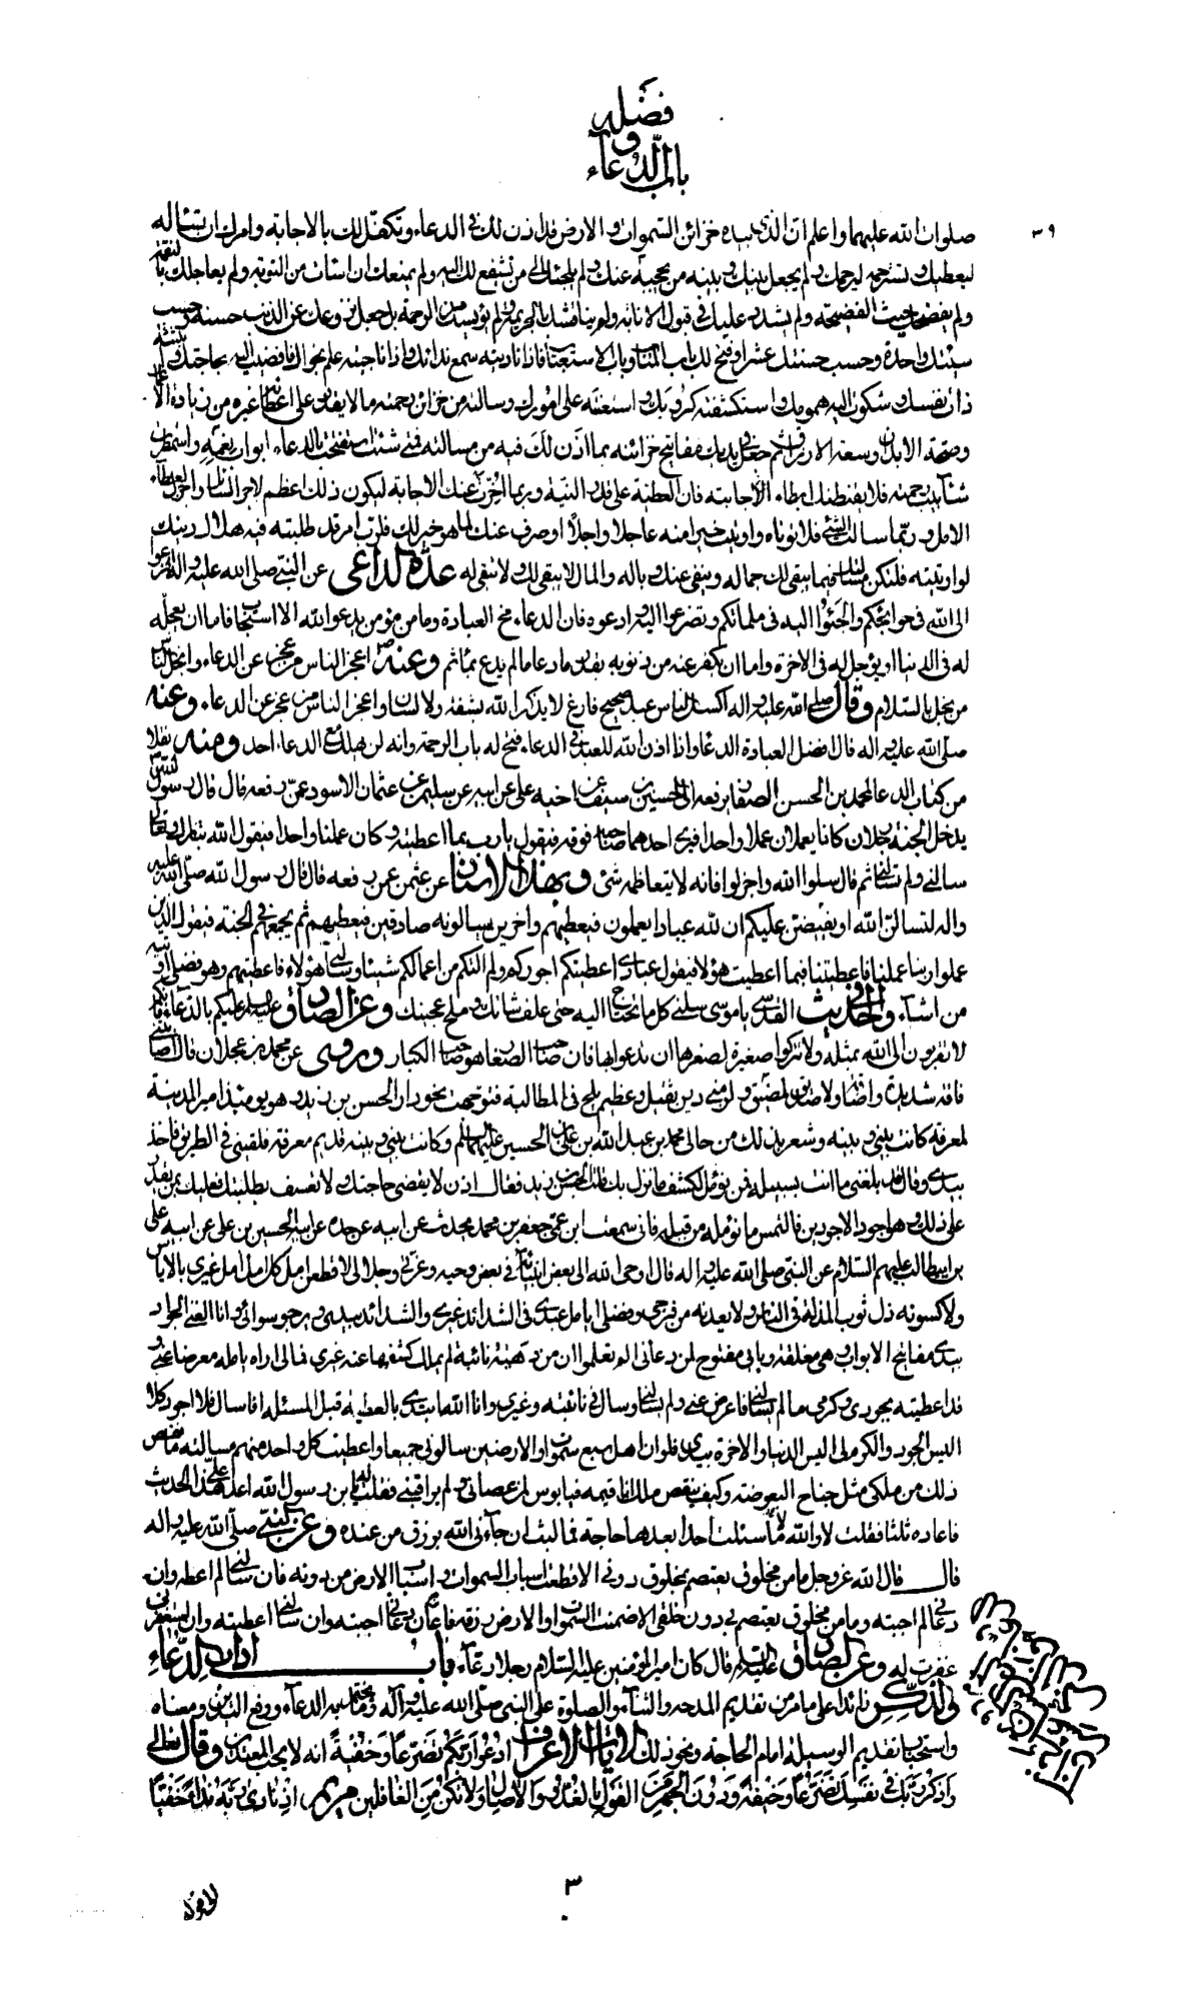 فضله
و
باب الدعاء
٣٩
صلوات الله عليهما واعلم ان الذي بيده خزائن السموات والارض قد اذن لك في الدعاء وتكفل لك بالاجابة وامرك ان تسئاله
ليعطيك وتسترحمه ليرحمك ولم يجعل بينك وبينه من يحجبه عنك ولم يلجئك الى من تشفع لك اليه ولم يمنعك ان اسات من التوبة ولم يعاجلك بالنقمة
ولم يفضحك حيث الفضيحة ولم يشدد عليك في قبول الانابة ولم يناقشك بالجريمة ولم يؤيسك من الرحمة بل جعل نزوعك عن الذنب حسنة وحسب
سيئتك واحدة وحسب حسنتك عشرا وفتح لك باب المتاب وباب الاستعتاب فاذا ناديته سمع نداءك واذا ناجيته علم نجواك فافضيت اليه بحاجتك وابثثته
ذات نفسك وشكوت اليه همومك واستكشفته كروبك واستعنته على امورك وسالته من خزائن رحمته ما لا يقدر على اعطائه غيره من زيادة الاعمار
وصحة الابدان وسعة الارزاق ثم جعل في يديك مفاتيح خزائنه بما اذن لك فيه من مسالته فمتى شئت استفتحت بالدعاء ابواب نعمته واستمطرت
شآبيب رحمته فلا يقنطنك ابطاء الاجابته فان العطية على قدر النية وربما اخرت عنك الاجابة ليكون ذلك اعظم لاجر السائل واجزل لعطاء
الامل وربما سالت الشئ فلا تؤتاه واوتيت خيرا منه عاجلا واجلا او صرف عنك لما هو خير لك فلرب امر قد طلبته فيه هلاك دينك
لو اوتيته فلتكن مسئلتك فيما يبقى لك جماله وينفى عنك وباله والمال لا يبقى لك ولا تبقى له عدة الداعي عن النبي صلى الله عليه واله افزعوا
الى الله في حوائجكم والجئوا اليه في ملماتكم وتضرعوا اليه وادعوه فان الدعاء مخ العبادة وما من مؤمن يدعو الله الا استجاب فاما ان يعجله
له في الدنيا او يؤجل له في الاخرة واما ان يكفر عنه من ذنوبه بقدر ما دعا ما لم يدع بماثم وعنه ص اعجز الناس من عجز عن الدعاء وابخل الناس
من بخل بالسلام وقال صلى الله عليه واله اكسل الناس عبد صحيح فارغ لا يذكر الله بشفة ولا لسان واعجز الناس من عجز عن الدعاء وعنه
صلى الله عليه واله قال افضل العبادة الدعاء واذا اذن الله للعبد في الدعاء فتح له باب الرحمة وانه لن يهلك مع الدعاء احد ومنه نقلا
من كتاب الدعاء لمحمد بن الحسن الصفار يرفعه الى الحسين بن سيف عن اخيه على عن ابيه عن سليم عن عثمان الاسود عمن رفعه قال قال رسول الله ص
يدخل الجنة رجلان كانا يعملان عملا واحدا فيرى احدهما صاحبه فوقه فيقول يا رب بما اعطيته وكان عملنا واحدا فيقول الله تبارك وتعالى
سالني ولم تسالني ثم قال سلوا الله واجزلوا فانه لا يتعاظمه شئ وبهذا الاسناد عن عثمن عمن رفعه قال قال رسول الله صلى الله عليه
واله لتسالن الله او يقبضن عليكم ان لله عبادا يعملون فيعطيهم واخرين يسالونه صادقين فيعطيهم ثم يجمعهم في الجنة فيقول الذين
عملوا ربنا عملنا فاعطيتنا فبما اعطيت هؤلا فيقول عبادي اعطيتكم اجوركم ولم التكم من اعمالكم شيئا وسالني هؤلاء فاعطيتهم وهو فضلي اوتيه
من اشاء وفي الحديث القدسي يا موسى سلني كل ما تحتاج اليه حتى علف شاتك وملح عجينك وعن الصادق عليه السلام عليكم بالدعاء فانكم
لا تقربون الى الله بمثله ولا تتركوا صغيرة لصغرها ان تدعوا بها فان صاحب الصغار هو صاحب الكبار وروى عن محمد بن عجلان قال اصابتني
فاقة شديدة واضاقة ولا صديق لمضيق ولزمني دين ثقيل وعظيم يلح في المطالبة فتوجهت نحو دار الحسن بن زيد وهو يومئذ امير المدينة
لمعرفة كانت بيني وبينه وشعر بذلك من حالي محمد بن عبد الله بن علي بن الحسين عليهم السلام وكانت بيني وبينه قديم معرفة فلقيني في الطريق فاخذ
بيدي وقال قد بلغني ما انت بسبيله فمن تؤمل لكشف ما نزل بك قلت الحسن بن زيد فقال اذن لا يقضى حاجتك ولا تسعف بطلبتك فعليك بمن يقدر
على ذلك وهو اجود الاجودين فالتمس ما تؤمله من قبله فاني سمعت ابن عمي جعفر بن محمد يحدث عن ابيه عن جده عن ابيه الحسين بن على عن ابيه على
بن ابيطالب عليهم السلام عن النبى صلى الله عليه واله قال اوحى الله الى بعض انبيائه في بعض وحيه وعزتي وجلالي لاقطعن امل كل امل امل غيري بالاياس
ولاكسونه ذل ثوب المذلة في الناس ولابعدنه من فرجي وفضلي ايامل عبدي في الشدائد غيري والشدائد بيدى ويرجو سوائي وانا الغني الجواد
بيدي مفاتيح الابواب وهي مغلقة وبابي مفتوح لمن دعاني الم تعلموا ان من دهته نائبة لم يملك كشفها عنه غيري فمالي اراه بامله معرضا عني وقد
قد اعطيته بجودي وكرمي ما لم يسالني فاعرض عني ولم يسالني وسال في نائبته غيري وانا الله ابتدئ بالعطية قبل المسئلة افاسال فلا اجود كلا
اليس الجود والكرم لي اليس الدنيا والاخرة بيدي فلو ان اهل سبع سموات والارضين سالوني جميعا واعطيت كل واحد منهم مسالته ما نقص
ذلك من ملكي مثل جناح البعوضة وكيف ينقص ملك انا قيمه فيا بوس لمن عصاني ولم يراقبني فقلت له يا بن رسول الله اعد علي هذا الحديث
فاعاده ثلثا فقلت لا والله ما سئلت احدا بعدها حاجة فما لبثت ان جاءني الله برزق من عنده وعن النبي صلى الله عليه واله
قال قال الله عز وجل ما من مخلوق يعتصم بمخلوق دوني الا قطعت اسباب السموات واسباب الارض من دونه فان سالني لم اعطه وان
دعاني لم اجبه وما من مخلوق يعتصم بي دون خلقي الا ضمنت السموات والارض رزقه فان دعاني اجبته وان سالني اعطيته وان استغفرني
غفرت له وعن الصادق عليه السلام قال كان امير المؤمنين عليه السلام رجلا دعاء باب اداب الدعاء
والذكر زائدا على ما مر من تقديم المدحة والثناء والصلوة على النبى صلى الله عليه وآله وما يختم به الدعاء ورفع اليدين ومعناه
واستحباب تقديم الوسيلة امام الحاجة ونحو ذلك الايات الاعراف ادعوا ربكم تضرعا وخفية انه لا يحب المعتدين وقال تعالى
واذكر ربك في نفسك تضرعا وخيفة ودون الجهر من القول بالغدو والاصال ولا تكن من الغافلين مريم اذ نادى ربه نداء خفيا
٣